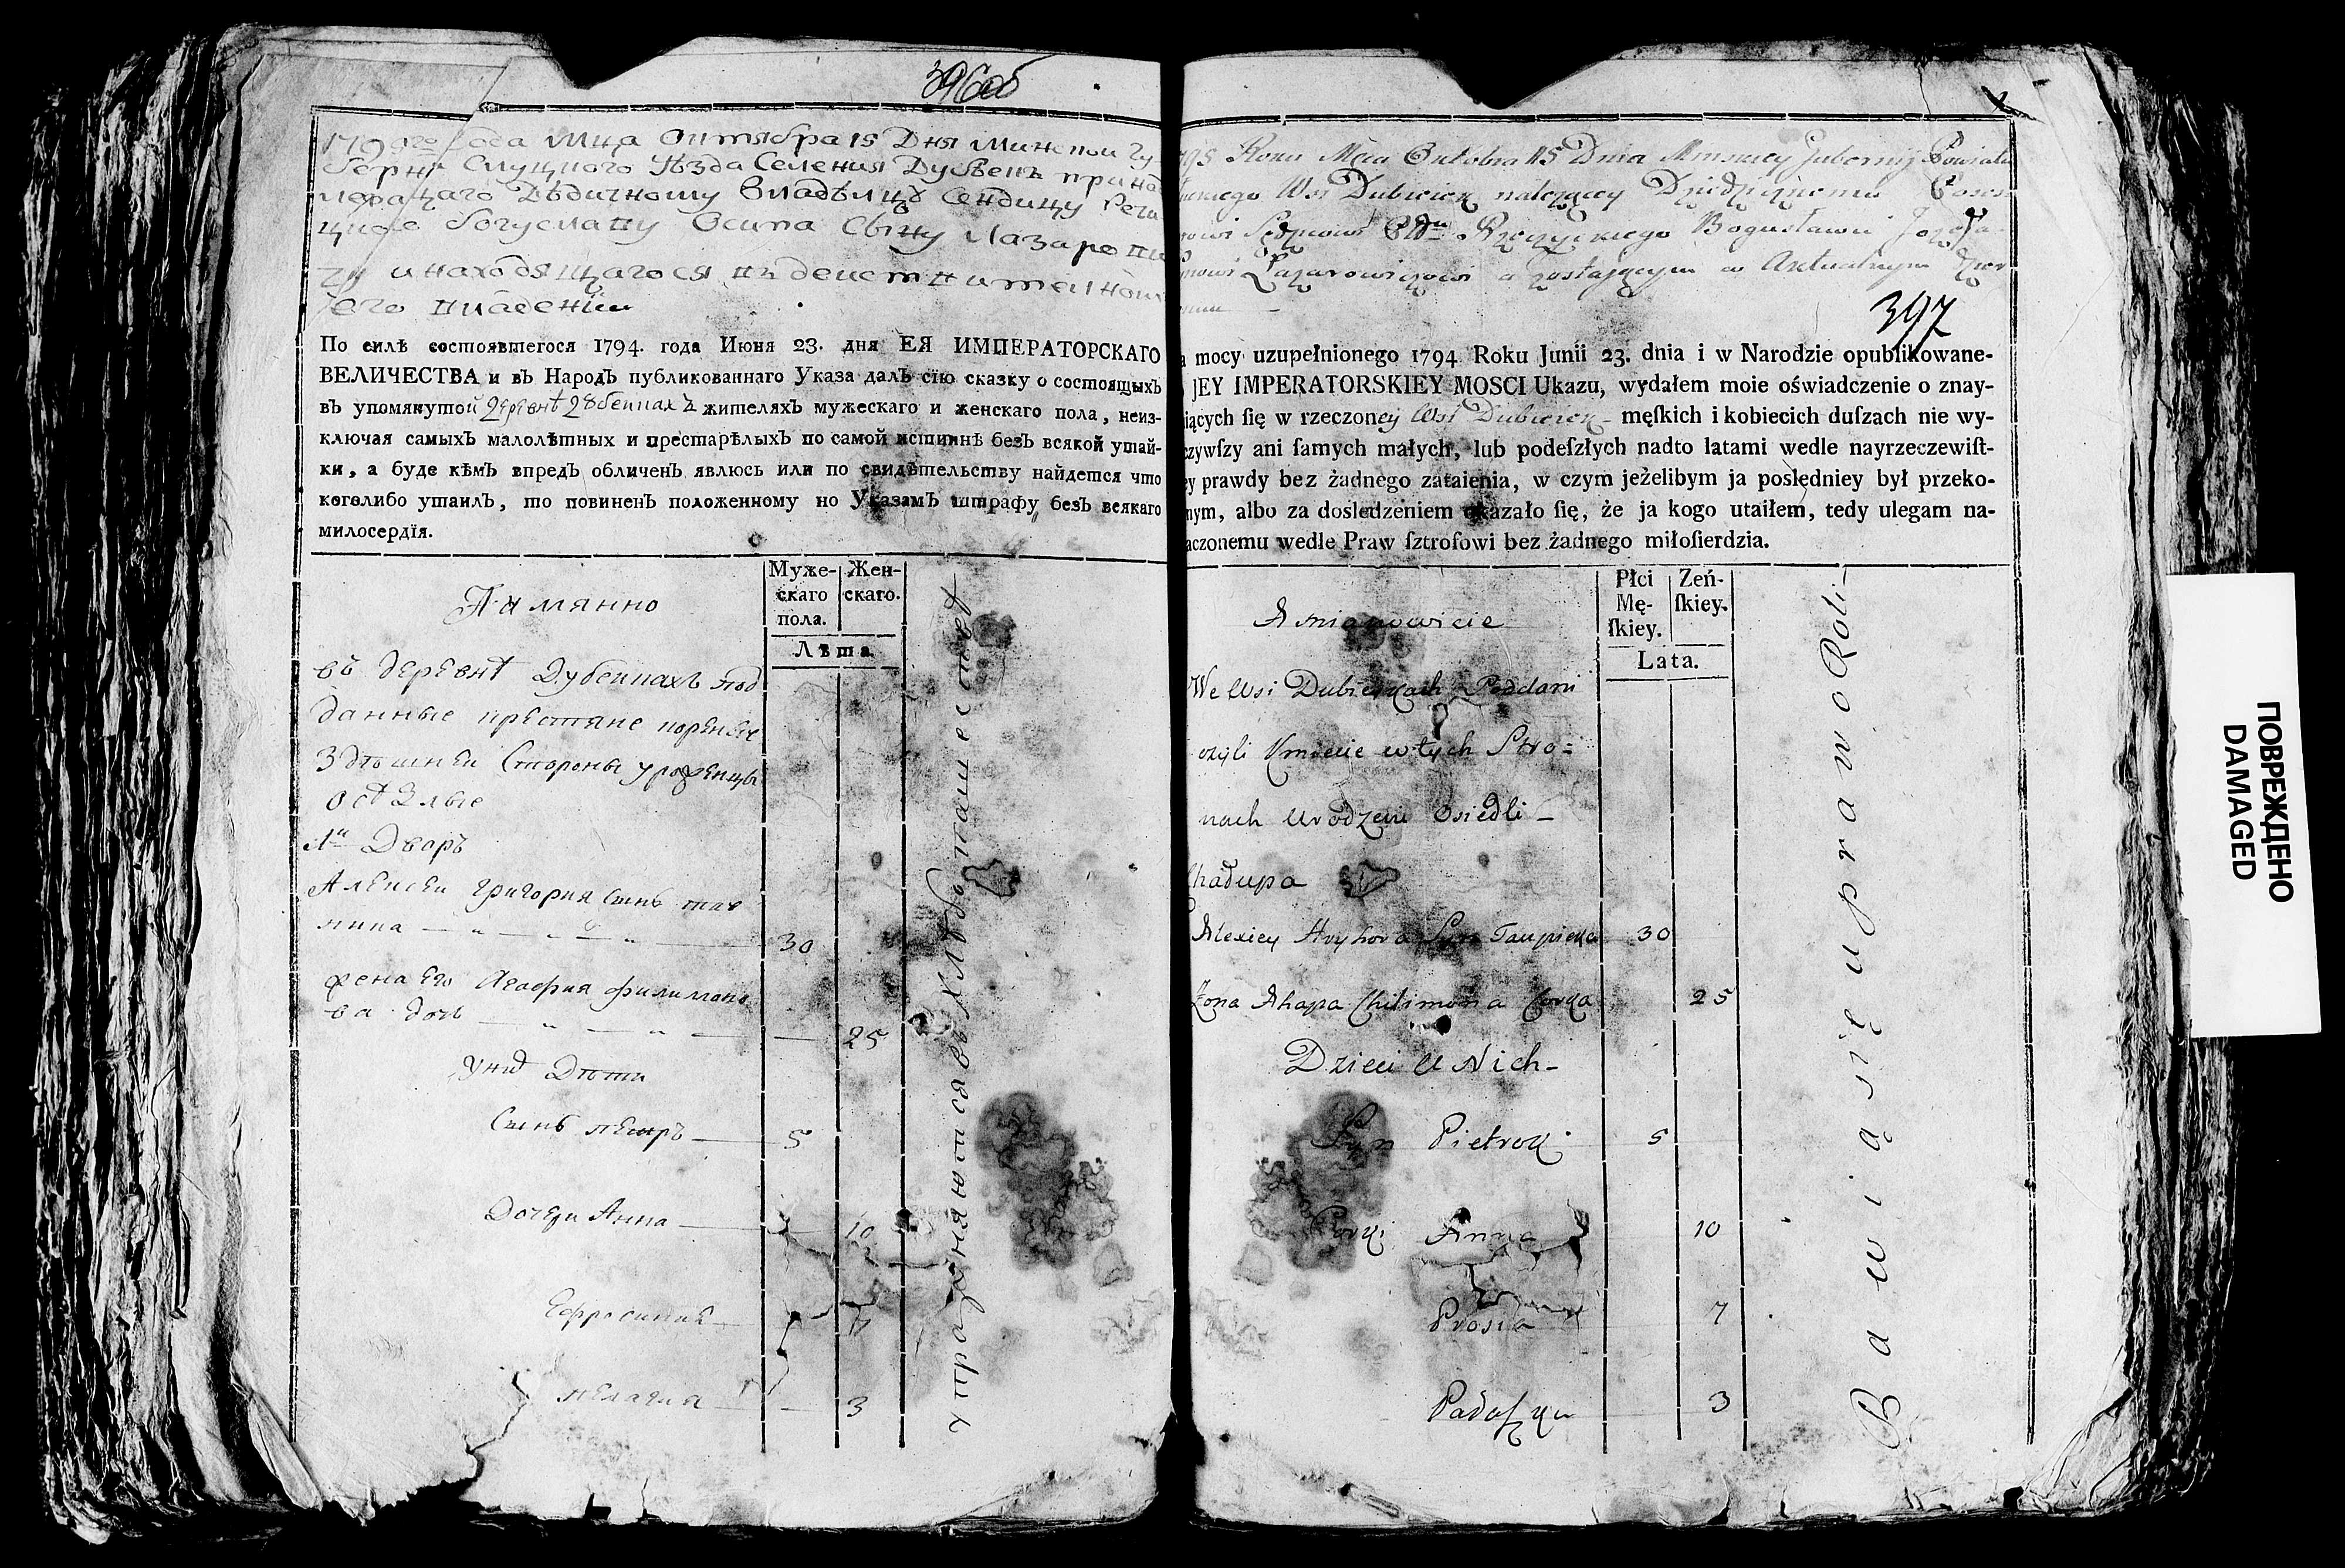 396об
1795го Года Мца Октября 15 Дня Минской Гу
берни Слуцкого Уѣзда Селения Дубѣекъ принад
лежащаго Дѣдичному Владѣлцу Сендицу
Богуславу Осипа Сыну Лазарови
чу инаходящагося въ действителном
его владении
По силѣ состоявшегося 1794. года Июня 23. дня ЕЯ ИМПЕРАТОРСКАГО
ВЕЛИЧЕСТВА и въ НародЪ публикованнаго Указа далЪ сїю сказку о состоящыхъ
въ упомянутой деревнѣ Дубейкахъ жителяхЪ мужескаго и женскаго пола, неиз-
ключая самыхЪ малолѣтныхъ и престарѣлыхЪ по самой истиннѣ безЪ всякой утай-
ки, а буде кѣмЪ впредЪ обличенЪ явлюсь или по свидѣтельству найдется что
коголибо утаилЪ, то повиненЪ положенному по УказамЪ штрафу безЪ всякаго
милосердїя.
Муже-
скаго
пола.
Жен-
скаго.
Лѣта.
А имянно
въ деревнѣ Дубейкахъ под
данные крестяне
Здѣшней Стороны урожденцы
осѣдлые
1й Дворъ
Алексей Григория Сынь
30
жена Его Агафия филимоно
ва дочь 25
у нихъ Дѣти
Сынь петръ 5
Дочери Анна 10
Ефросиния 7
пелагия 3
упражняются въ хлѣбопашествѣ
Roku Mca Oktobra 15 Dnia Minskiey Gubernij Powiatu
Wsi Dubieiek należący Dziedzicznemu
Bogusławu Jozefa
Łazarowiczowi a zostającym w Aktualnym
397
mocy uzupełnionego 1794 Roku Junii 23. dnia i w Narodzie opublikowane-
JEY IMPERATORSKIEY MOSCI Ukazu, wydałem moie oświadczenie o znay-
iących ſię w rzeczoney Wsi Dubieiek męſkich i kobiecich duſzach nie wy-
czywſzy ani ſamych małych, lub podeſzłych nadto latami wedle nayrzeczewiſt-
ey prawdy bez żadnego zataienia, w czym jeżelibym ja posłedniey był przeko-
nym, albo za dosledzeniem okazało ſię, że ja kogo utaiłem, tedy ulegam na-
aczonemu wedle Praw ſztrofowi bez żadnego miłoſierdzia.
Płci
Mę-
ſkiey.
Zeń-
ſkiey.
Lata.
A mianowicie
We Wsi Dubieykach Poddani
czyli Kmiecie w tych Stro=
nach Urodzeni Osiedli
Chałupa
Alexiey Hryhora Syn 30
Żona Ahapa Chilimona Corka 25
Dzieci U Nich
Syn Pietrok 5
Corki Anna 10
Prosia 7
Padoſzka 3
Bawią się uprawo Roli
ПОВРЕЖДЕНО
DAMAGED